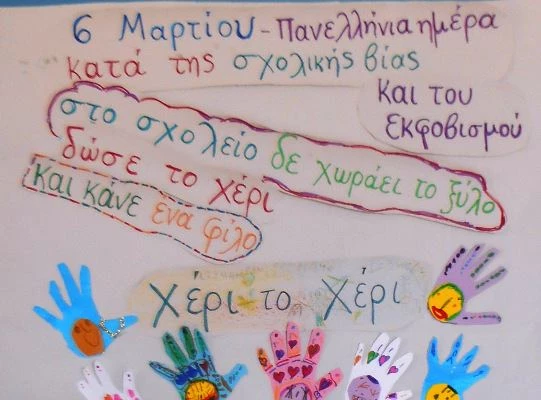 6 Μαρτίου - Πανελλήνια ημέρα
κατά της σχολικής βίας
και του
εκφοβισμού
στο σχολείο δε χωράει το ξύλο
δώσε το χέρι
και κάνε ένα φίλο
Χέρι το χέρι